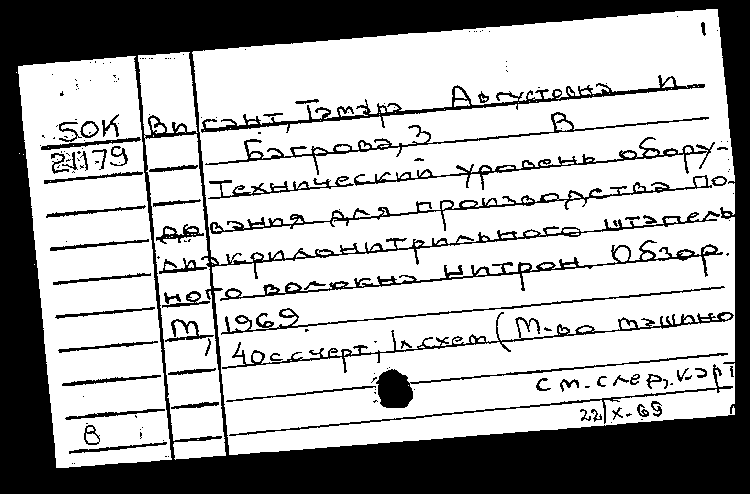 1
50K Висант, Тамара Августовна и
21179 Багрова, З В
Технический уровень обору-
дования для производства по-
лиакрилонитрильного штапель
ного волокна нитрон. Обзор.
М, 1969.
40с.черт; 1л.схем (М-во машино
см.след.карт
22/X-69
8